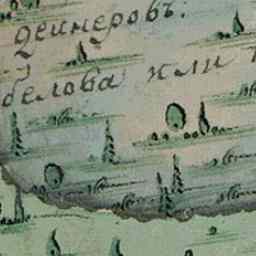 дѣинеровъ.
белова или